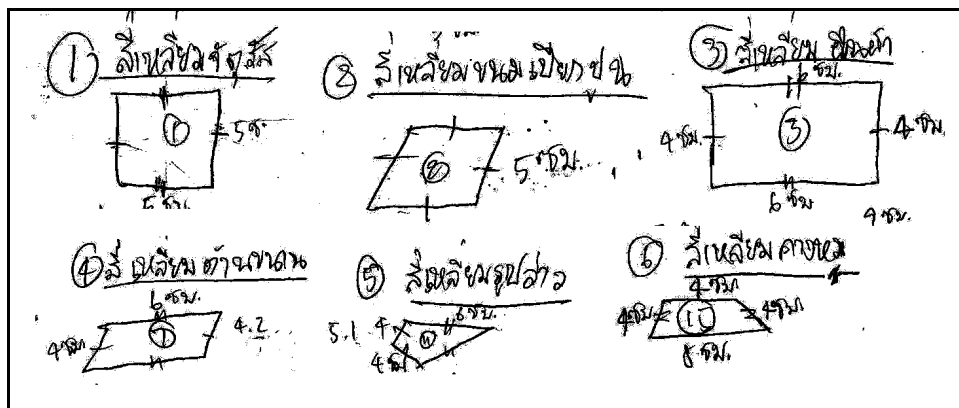 ① สี่เหลี่ยมจัตุรัส
① 5 ซ
5 ซม.
② สี่เหลี่ยมขนมเปียกปูน
② 5 ซม.
③ สี่เหลี่ยมผืนผ้า
6 ซม.
4 ซม. ③ 4 ซม.
6 ซม
4 ซม.
④ สี่เหลี่ยมด้านขนาน
6 ซม.
4 ซม. 4.2
⑤ สี่เหลี่ยมรูปว่าว
6 ซม.
5.1 4
4 ซม
⑥ สี่เหลี่ยมคางหมู
4 ซม.
4 ซม. 4 ซม.
8 ซม.